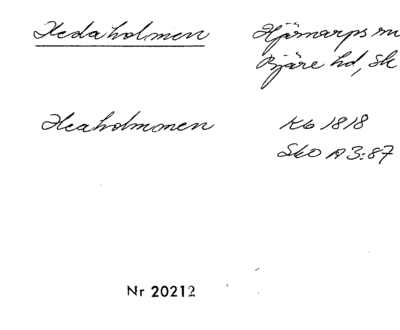 Hedaholmen Hjärnarps sn
Bjäre hd, Sk
Heaholmonen Kb 1818
SkO A 3:87
Nr 20212